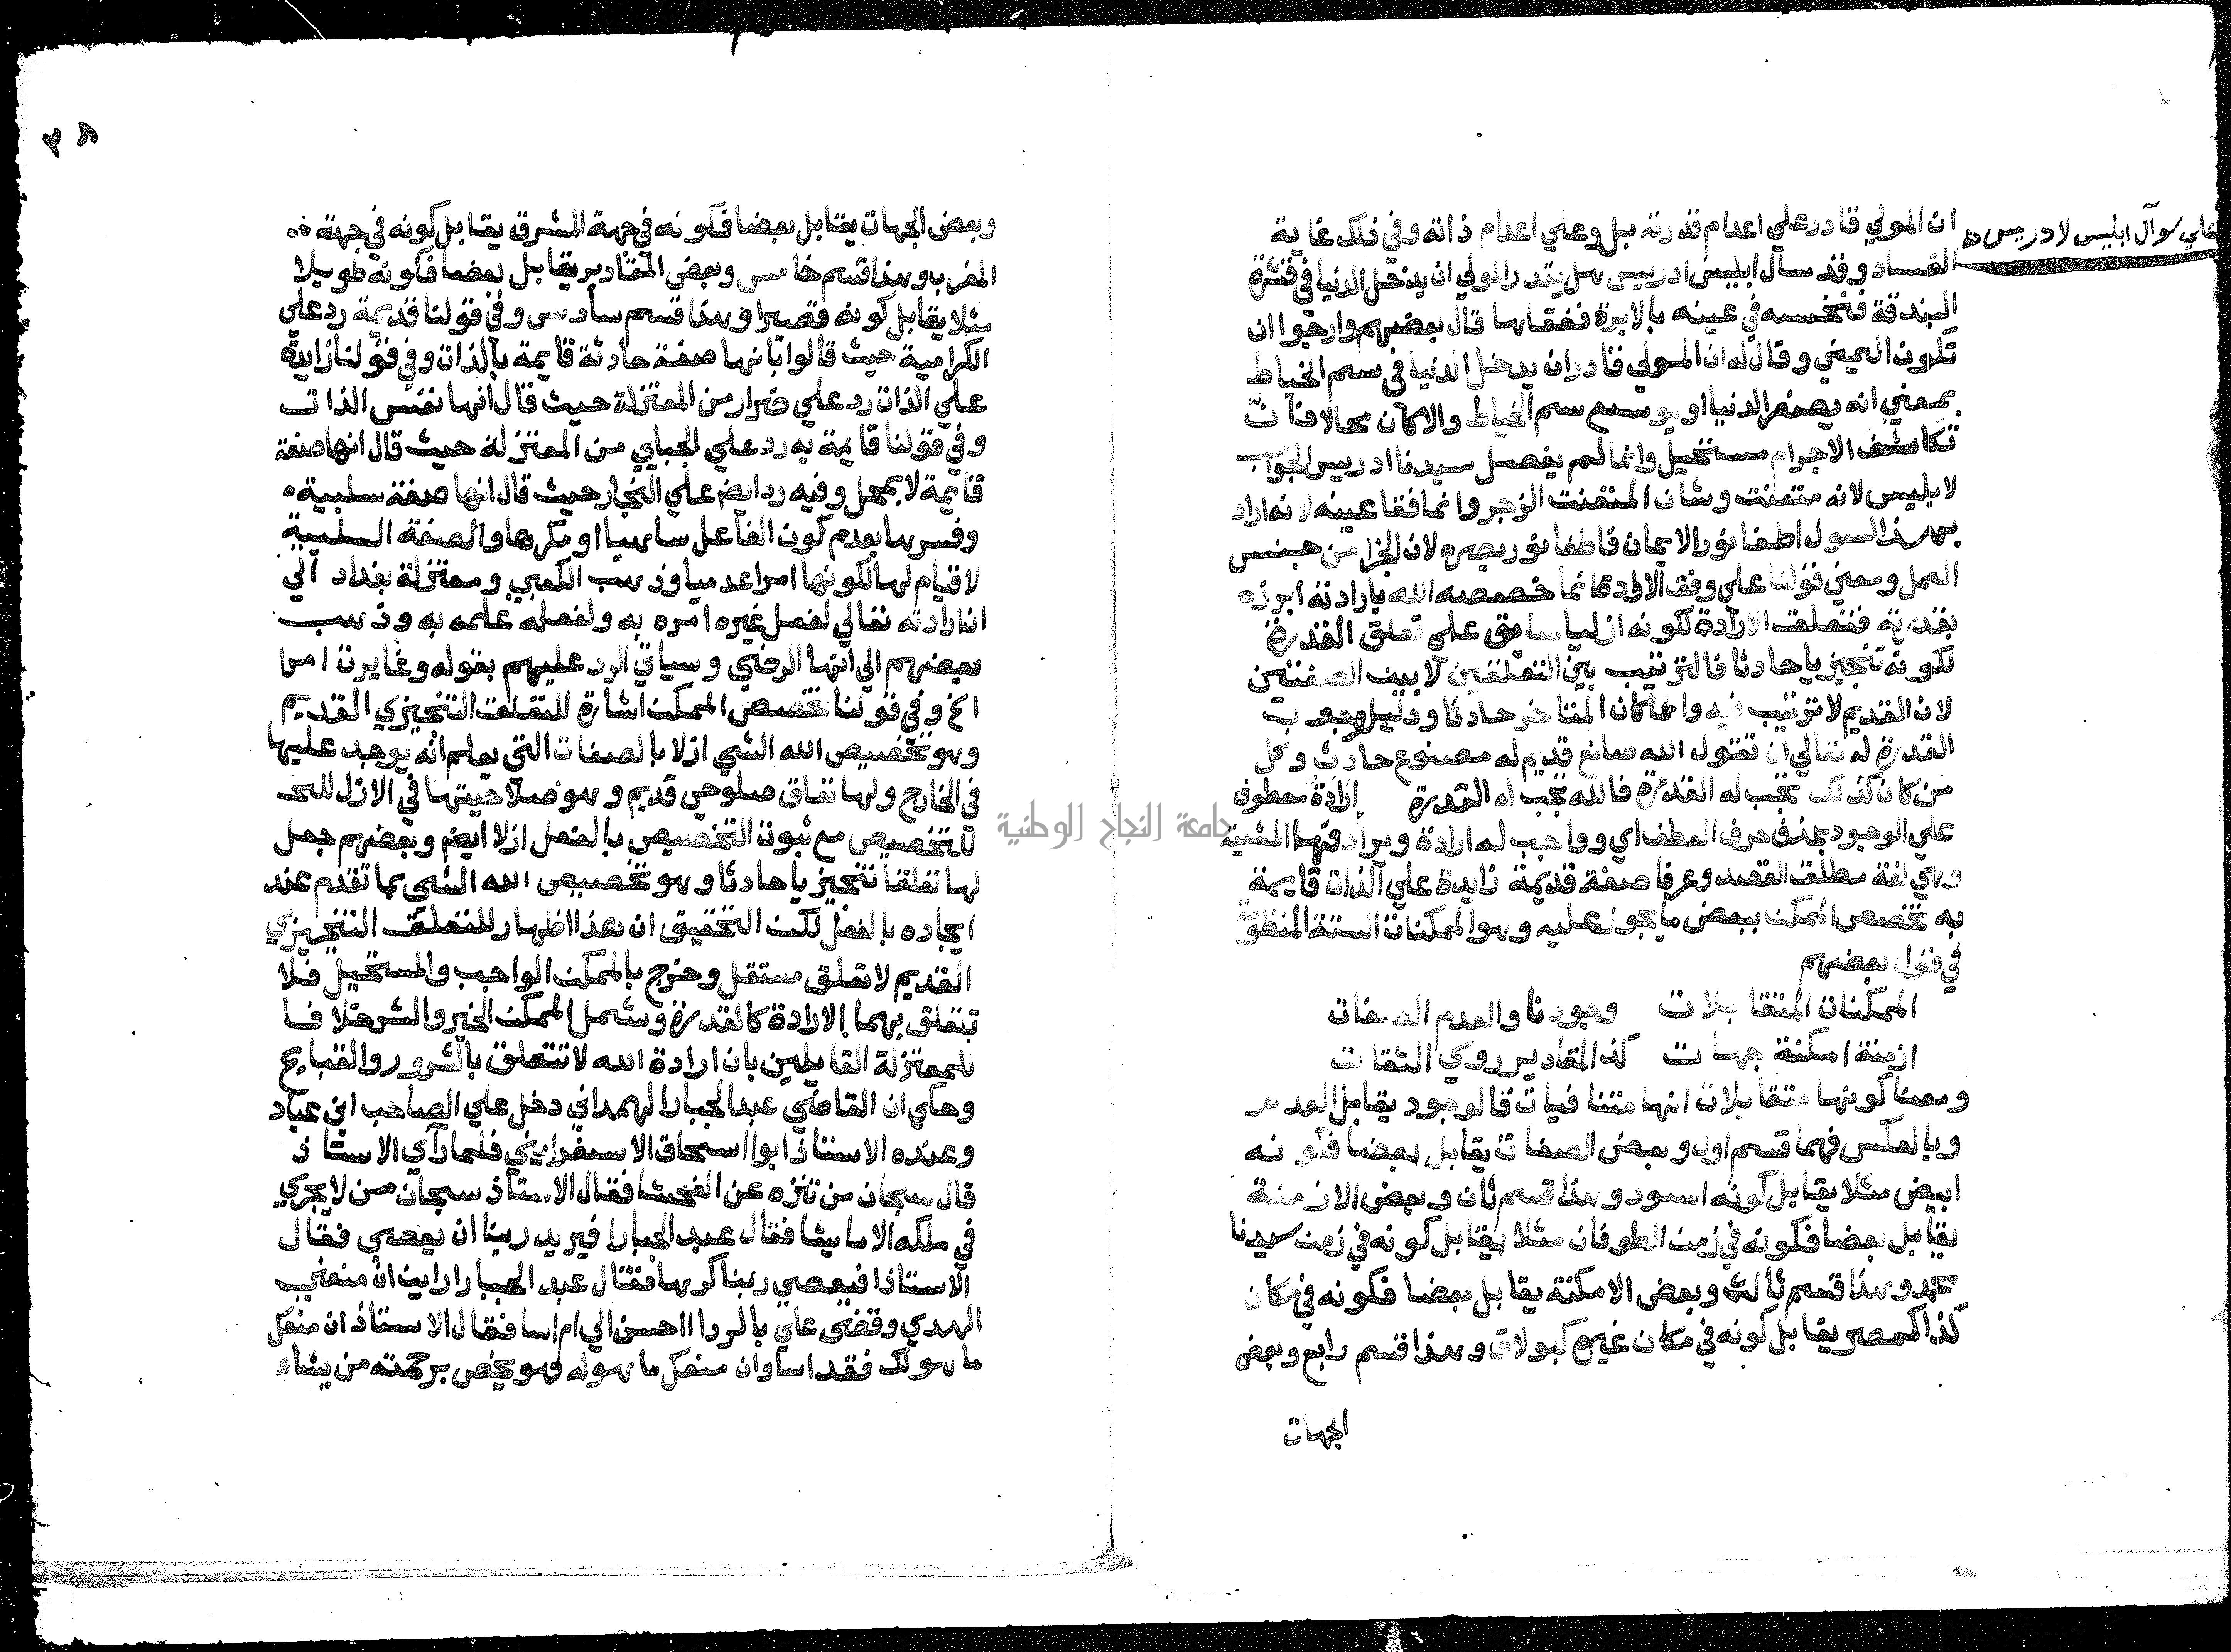 علي سوآل ابليس لادريس
ان المولي قادر علي اعدام قدرته بل وعلي اعدام ذاته وفي ذلك غاية
الفساد وقد سال ابليس ادريس هل يقدر المولي ان يدخل الدنيا في قشرة
البندقة فنخسه في عينه بالابرة ففقاها قال بعضهم وارجوا ان
تكون اليمني وقال له ان المولي قادر ان يدخل الدنيا في سم الخياط
بمعني انه يصغر الدنيا او يوسع سم الخياط والا كان محالا فان
تكاثف الاجرام مستحيل وانما لم يفصل سيدنا ادريس الجواب
لابليس لانه متعنت وشان المتعنت الزجر وانما فقا عينه لانه اراد
بهذا السول اطفا نور الايمان فاطفا نور بصره لان الجزا من جنس
العمل ومعني قولنا علي وفق الارادة انما خصصه الله بارادته ابرزه
بقدرته فتعلق الارادة لكونه ازليا سابق علي تعلق القدرة
لكونه تنجيزيا حادثا فالترتيب بين التعلقين لا بين الصفتين
لان القديم لا ترتيب فيه والا لكان المتاخر حادثا ودليل وجوب
القدرة له تعالي ان تقول الله صانع قديم له مصنوع حادث وكل
من كان كذلك تجب له القدرة فالله تجب له القدرة ارادة معطوف
علي الوجود بحذف حرف العطف اي وواجب له ارادة ويرادفها المشية
وهي لغة مطلق القصد وعرفا صفة قديمة زايدة علي الذات قايمة
به تخصص الممكن ببعض ما يجوز عليه وهو الممكنات الستة المنظومة
في قول بعضهم
الممكنات المتقابلات وجودنا والعدم الصفات
ازمنة امكنة جهات كذا المقادير روي الثقات
ومعنا كونها متقابلات انها متنافيات فالوجود يقابل العدم
وبالعكس فهما قسم اول وبعض الصفات يقابل بعضا فكونه
ابيض مثلا يقابل كونه اسود وهذا قسم ثان وبعض الازمنة
يقابل بعضا فكونه في زمن الطوفان مثلا يقابل كونه في زمن سيدنا
محمد وهذا قسم ثالث وبعض الامكنة يقابل بعضا فكونه في مكان
كذا كمصر يقابل كونه في مكان غيره كبولاق وهذا قسم رابع وبعض
الجهات
جامعة النجاح الوطنية
٣٨
وبعض الجهات يقابل بعضا فكونه في جهة المشرق يقابل كونه في جهة
المغرب وهذا قسم خامس وبعض المقادير يقابل بعضا فكونه طويلا
مثلا يقابل كونه قصيرا وهذا قسم سادس وفي قولنا قديمة رد علي
الكرامية حيث قالوا بانها صفة حادثة قايمة بالذات وفي قولنا زايدة
علي الذات رد علي ضرار من المعتزلة حيث قال انها نفس الذات
وفي قولنا قايمة به رد علي الجبايي من المعتزلة حيث قال انها صفة
قايمة لا بمحل وفيه رد ايضم علي النجار حيث قال انها صفة سلبية
وفسرها بعدم كون الفاعل ساهيا او مكرها والصفة السلبية
لا قيام لها لكونها امرا عدميا وذهب الكعبي ومعتزلة بغداد الي
ان ارادته تعالي لفعل غيره امره به ولفعله علمه به وذهب
بعضهم الي انها الرضي وسياتي الرد عليهم بقوله وغايرت امرا
الخ وفي قولنا تخصص الممكن اشارة للتعلق التنجيزي القديم
وهو تخصيص الله الشي ازلا بالصفات التي يعلم انه يوجد عليها
في الخارج ولها تعلق صلوحي قديم وهو صلاحيتها في الازل للتخ
للتخصيص مع ثبوت التخصيص بالفعل ازلا ايضم وبعضهم جعل
لها تعلقا تنجيزيا حادثا وهو تخصيص الله الشي بما تقدم عند
ايجاده بالفعل لكن التحقيق ان هذا اظهار للتعلق التنجيزي
القديم لا تعلق مستقل وخرج بالممكن الواجب والمستحيل فلا
تتعلق بهما الارادة كالقدرة وشمل الممكن الخير والشر خلافا
للمعتزلة القايلين بان ارادة الله لا تتعلق بالشرور والقبايح
وحكي ان القاضي عبد الجبار الهمداني دخل علي الصاحب ابن عباد
وعنده الاستاذ ابوا اسحاق الاسفرايني فلما رآي الاستاذ
قال سبحان من تنزه عن الفحشا فقال الاستاذ سبحان من لا يجري
في ملكه الا ما يشا فقال عبد الجبار افيريد ربنا ان يعصي فقال
الاستاذ افيعصي ربنا كرها فقال عبد الجبار ارايت ان منعني
الهدي وقضي علي بالردا احسن الي ام اسا فقال الاستاذ ان منعك
ما هو لك فقد اسا وان منعك ما هو له فهو يخص برحمته من يشاء